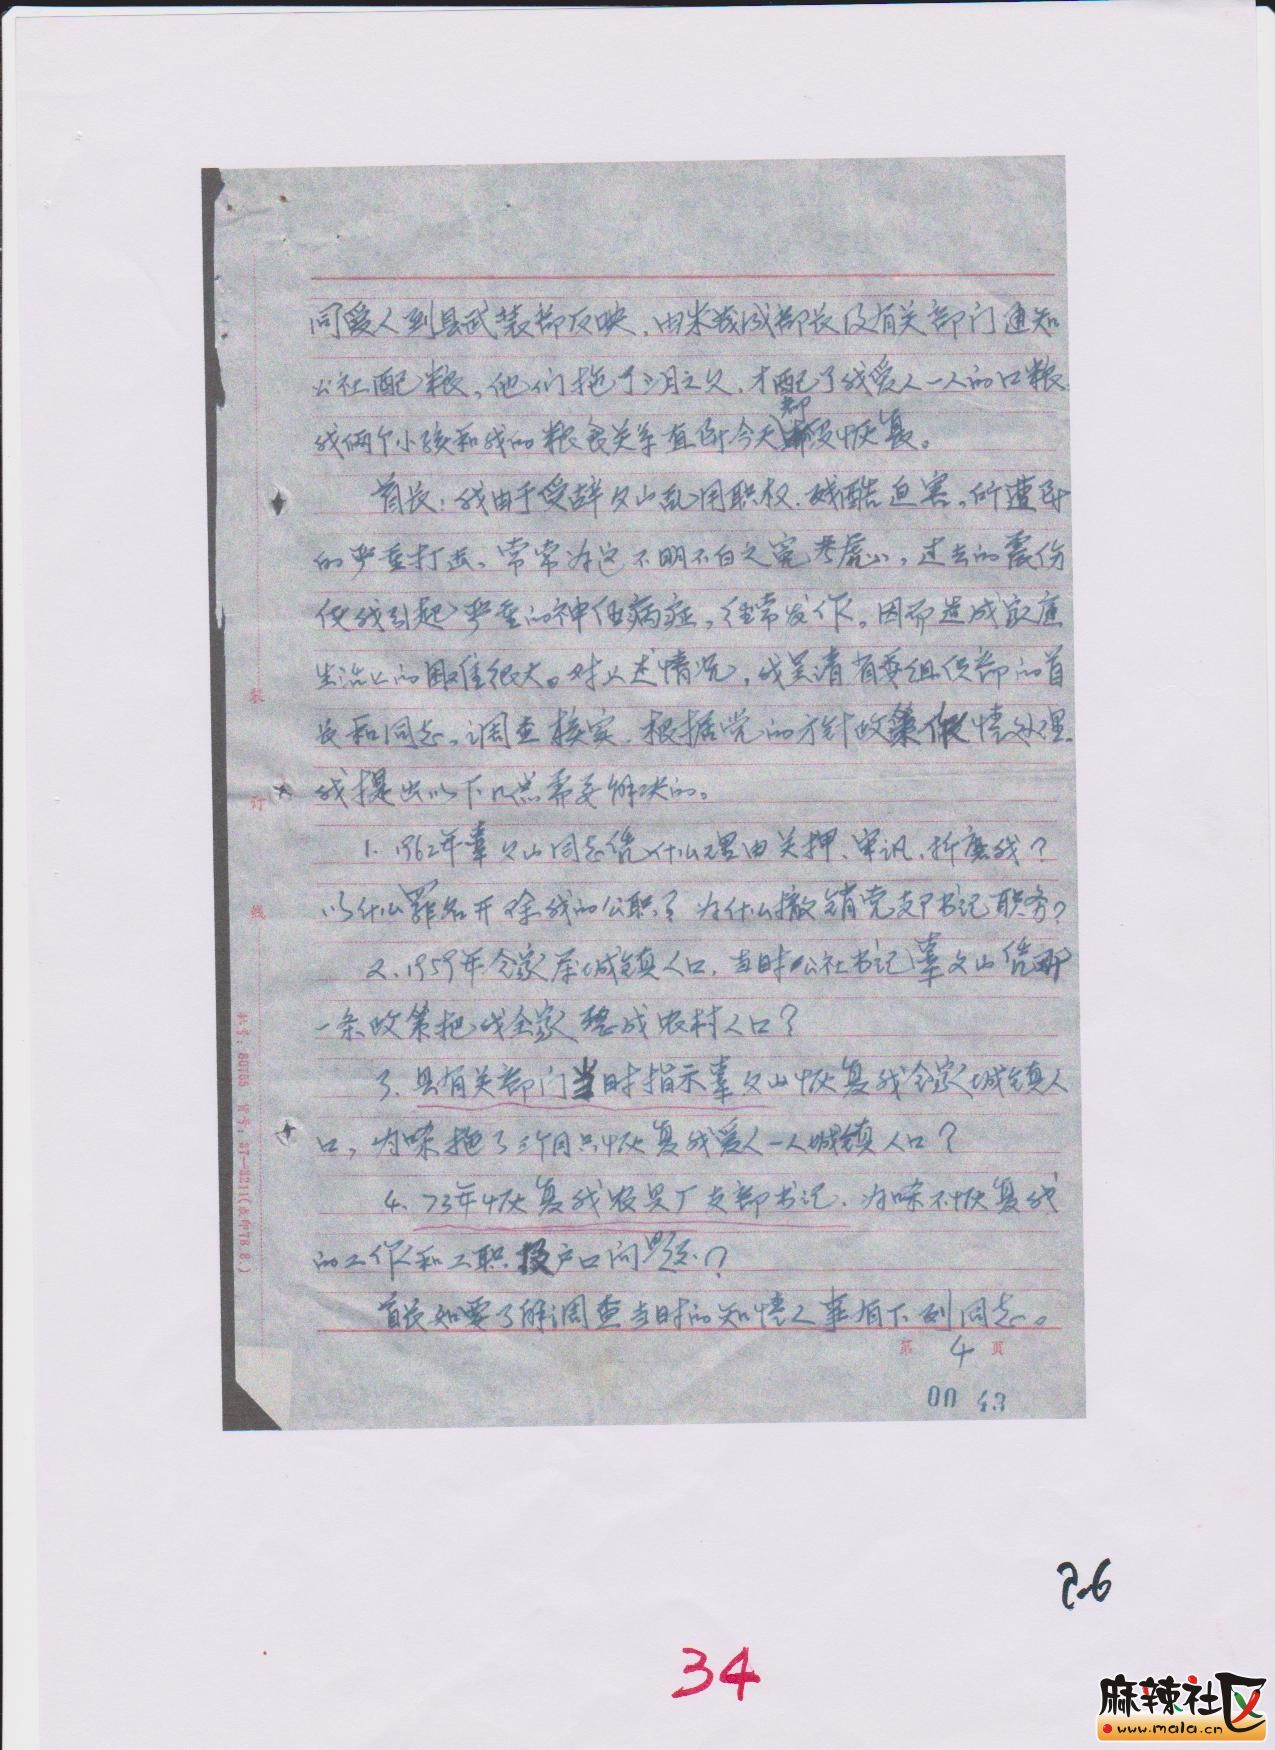 同爱人到县武装部反映，由米成部长及有关部门通知
公社配粮，他们拖了3月之久，才配了我爱人一人的口粮，
我俩个小孩和我的粮食关系直到今天都没恢复。
首长：我由于受辜文山乱用职权，残酷迫害，所遭到
的严重打击，常常为这不明不白之冤考虑，过去的震伤
使我引起严重的神经病症，经常发作，因而造成家庭
生活上的困难很大。对上述情况，我呈请省委组织部的首
长和同志，调查核实，根据党的方针政策做情处理，
我提出以下几点需要解决的。
1. 1962年辜文山同志凭什么理由关押、审讯、折磨我？
以什么罪名开除我的公职？为什么撤销党支部书记职务？
2. 1959年全家在城镇人口，当时公社书记辜文山凭哪
一条政策把我全家整成农村人口？
3. 县有关部门当时指示辜文山恢复我全家城镇人
口，为啥拖了3个月只恢复我爱人一人城镇人口？
4. 73年恢复我农具厂支部书记，为啥不恢复我
的工作和工职及户口问题？
首长如要了解调查当时的知情人事有下列同志。
第4页
00 43
装
订
线
26
34
麻辣社区
www.mala.cn